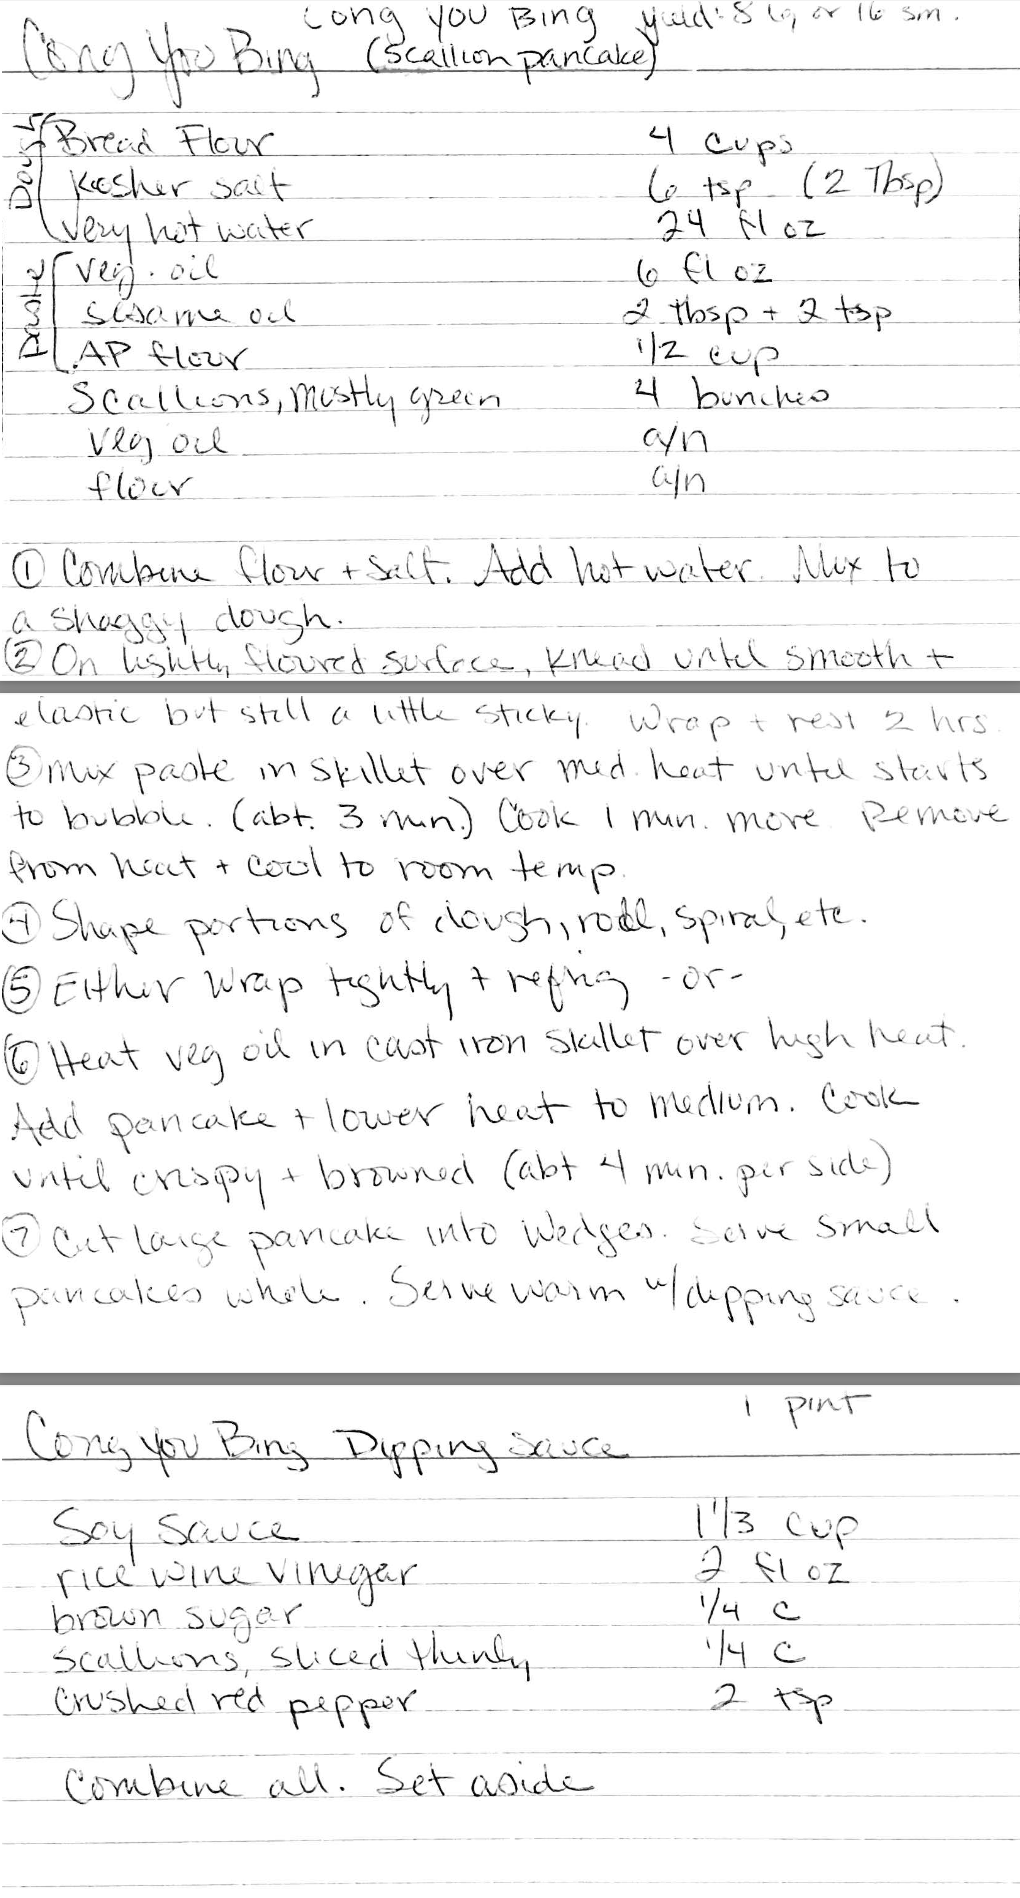 Cong You Bing yield: 8 lg or 16 sm.
Cong You Bing (scallion pancake)
Dough
Bread Flour 4 cups
Kosher salt 6 tsp (2 Tbsp)
very hot water 24 fl oz
paste
veg. oil 6 fl oz
sesame oil 2 tbsp + 2 tsp
AP flour 1/2 cup
Scallions, mostly green 4 bunches
veg oil a/n
flour a/n
① Combine flour + salt. Add hot water. Mix to
a shaggy dough.
② On lightly floured surface, knead until smooth +
elastic but still a little sticky. Wrap + rest 2 hrs.
③ mix paste in skillet over med. heat until starts
to bubble. (abt. 3 min.) Cook 1 min. more. Remove
from heat + cool to room temp.
④ Shape portions of dough, roll, spiral, etc.
⑤ Either wrap tightly + refrig -or-
⑥ Heat veg oil in cast iron skillet over high heat.
Add pancake + lower heat to medium. Cook
until crispy + browned (abt 4 min. per side)
⑦ Cut large pancake into wedges. Serve small
pancakes whole. Serve warm w/ dipping sauce.
1 pint
Cong You Bing Dipping Sauce
Soy Sauce 1 1/3 cup
rice wine vinegar 2 fl oz
brown sugar 1/4 c
scallions, sliced thinly 1/4 c
crushed red pepper 2 tsp
Combine all. Set aside